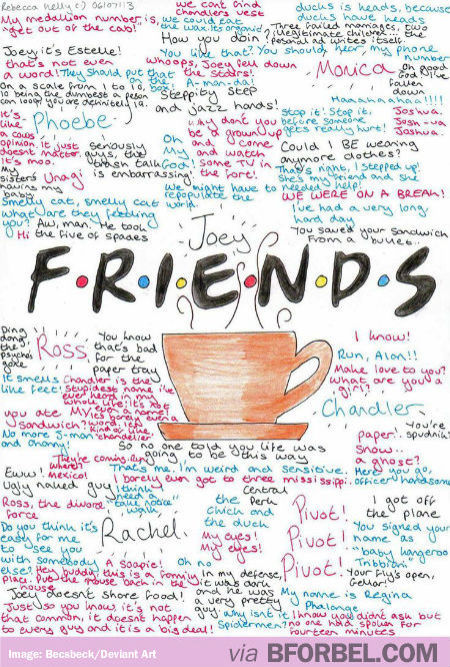 Rebecca Kelly (c) 06/07/13
My medallion number, is,
"get out of the cab!"
we cant find
chandlers vest
we could eat
the wax. its organic
How you doin?
ducks is heads, because
ducks have heads
Three failed marriages, two
illegitimate children... the
personal ad writes itself.
Joey, it's Estelle!
that's not even
a word!
They should put that
on the box!
You like that? You should hear, my phone
number
whoops, Joey fell down
the stairs!
A-man-da!
On a scale from 1 to 10,
10 being the dumbest a person
can look, you are definitely 19.
Steppity step
and jazz hands!
MONICA
oh good
God I've
fallen
down
Haaahahaha!!!!
It's
like
a cows
opinion. it just
doesnt matter.
It's moo.
Phoebe
Seriously
guys, the
trash talk
is embarrassing!
Oh
My
God!
why dont you
be a grownup
and come
and watch
some TV in
the fort!
Stop it! Stop it.
before someone
gets really hurt!
Joshua.
Josh-ua
Joshua
Could I BE wearing
anymore clothes?
My
sisters
having my
baby
Unagi
That's right, I stepped up!
She's my friend and she
needed help!
we might have to
repopulate the
world.
WE WERE ON A BREAK!
Smelly cat, smelly cat
what are they feeding
you?
Aw, man. He took
the five of spades
Hi
I've had a very long
hard day
You saved your sandwich
from a bullet..
Joey
F•R•I•E•N•D•S
Ding
dong
the
psycho's
gone
ROSS
You know
that's bad
for the
paper tray
I know!
Run, Alan!!
Make love to you?
What, are you a
girl?
It smells
like feet!
Chandler is the
stupidest name i've
ever heard in my
whole life! It's not
even a name!
It's barely even a
word. its
kind of like
chandelier
you ate
MY
sandwich?
No more J-man
and chany!
Chandler
You're
sputnik!
paper.
Snow..
a ghost!
So no one told you life was
going to be this way
They're coming. Run
where?
Mexico!
Eww!
Ugly naked guy
That's me, I'm weird and sensitive.
I barely even got to three mississippi.
Here you go,
officer handsome
Ross, the divorce
force
I think I
need a
"take notice"
walk
Central
Perk
the
Chick and
the duck
Pivot!
Pivot!
Pivot!
I got off
the plane
Do you think it's
easy for me
to see you
with somebody
else?
Rachel
My eyes!
My eyes!
You signed your
name as
"baby kangeroo
Tribbiani"
A soapie!
Oh no
Hey buddy, this is a family
place. Put the mouse back in the
house.
in my defense,
it was dark
and he was
a very pretty
guy
Your fly's open,
Geller!
Joey doesnt share food!
My name is Regina
Phalange
Just so you know, it's not
that common, it doesnt happen
to every guy and it is a big deal!
why isnt it
Spidermen?
I know you didnt ask but
no one had spoken for
fourteen minutes
Image: Becsbeck/Deviant Art
VIA BFORBEL.COM